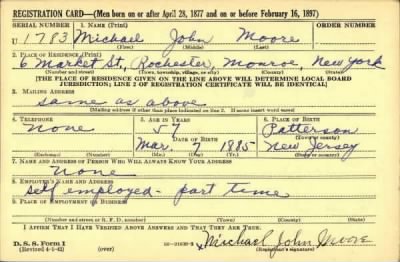 REGISTRATION CARD—(Men born on or after April 28, 1877 and on or before February 16, 1897)
SERIAL NUMBER 1. NAME (Print) ORDER NUMBER
U 1783 Michael John Moore
(First) (Middle) (Last)
2. PLACE OF RESIDENCE (Print)
6 Market St., Rochester, Monroe, New York
(Number and street) (Town, township, village, or city) (County) (State)
[THE PLACE OF RESIDENCE GIVEN ON THE LINE ABOVE WILL DETERMINE LOCAL BOARD
JURISDICTION; LINE 2 OF REGISTRATION CERTIFICATE WILL BE IDENTICAL]
3. MAILING ADDRESS
same as above
(Mailing address if other than place indicated on line 2. If same insert word same)
4. TELEPHONE 5. AGE IN YEARS 6. PLACE OF BIRTH
none 57 Patterson
DATE OF BIRTH (Town or county)
Mar. 7 1885 New Jersey
(Exchange) (Number) (Mo.) (Day) (Yr.) (State or country)
7. NAME AND ADDRESS OF PERSON WHO WILL ALWAYS KNOW YOUR ADDRESS
none
8. EMPLOYER'S NAME AND ADDRESS
self employed - part time
9. PLACE OF EMPLOYMENT OR BUSINESS
(Number and street or R. F. D. number) (Town) (County) (State)
I AFFIRM THAT I HAVE VERIFIED ABOVE ANSWERS AND THAT THEY ARE TRUE.
D. S. S. Form 1
(Revised 4-1-42) (over) x Michael John Moore
(Registrant's signature)